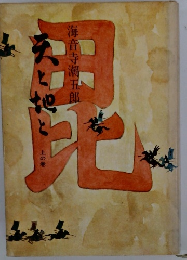 毘
海音寺潮五郎
天と地と
上の巻